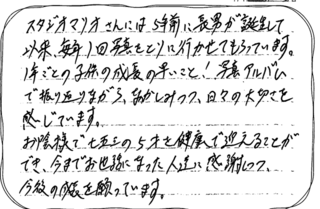 スタジオマリオさんには5年前に長男が誕生して
以来、毎年1回写真をとりに行かせてもらっています。
1年ごとの子供の成長の早いこと!写真アルバム
で振り返りながら、なつかしみつつ、日々の大切さを
感じています。
お陰様で七五三の5才を健康で迎えることが
でき、今までお世話になった人達に感謝しつつ、
今後の成長を願っています。